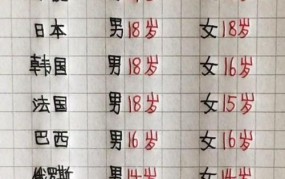 日本 男18岁 女18岁
韩国 男18岁 女16岁
法国 男18岁 女15岁
巴西 男16岁 女16岁
俄罗斯 男14岁 女14岁